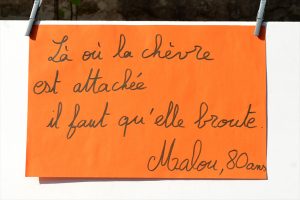 Là où la chèvre
est attachée
il faut qu'elle broute.
Malou, 80 ans